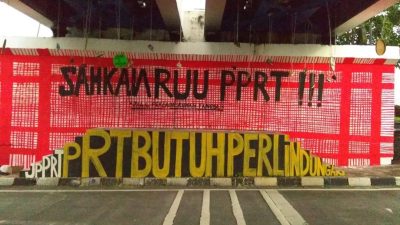 SAHKAN RUU PPRT !!!
JPPRT PRT BUTUH PERLINDUNGAN